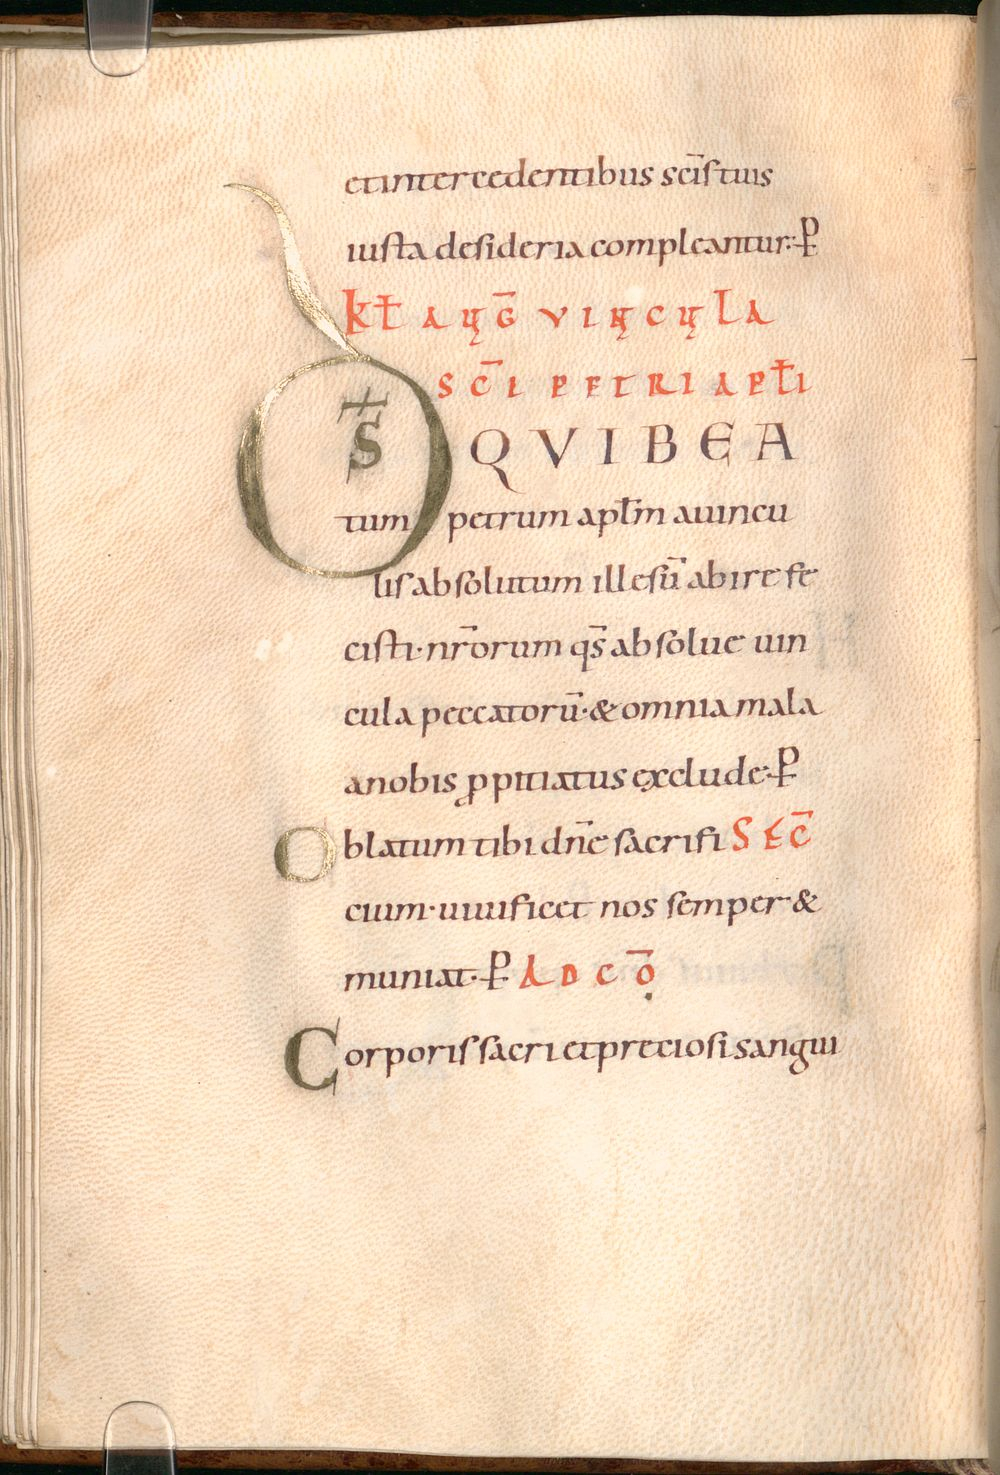 et intercedentibus sc̄is tuis
iusta desideria compleantur· P̲
KŁ AUḠ VINCULA
SC̄I PETRI APŁI
D̄S QVIBEA
tum petrum apłm auincu
lis absolutum illesū abire fe
cisti· nr̄orum qs̄ absolue uin
cula peccatorū· & omnia mala
anobis ꝓpitiatus exclude· P̲
Oblatum tibi dn̄e sacrifi SEC̄
cium· uiuificet nos semper &
muniat· P̲ AD CŌ
Corporis sacri et preciosi sangui